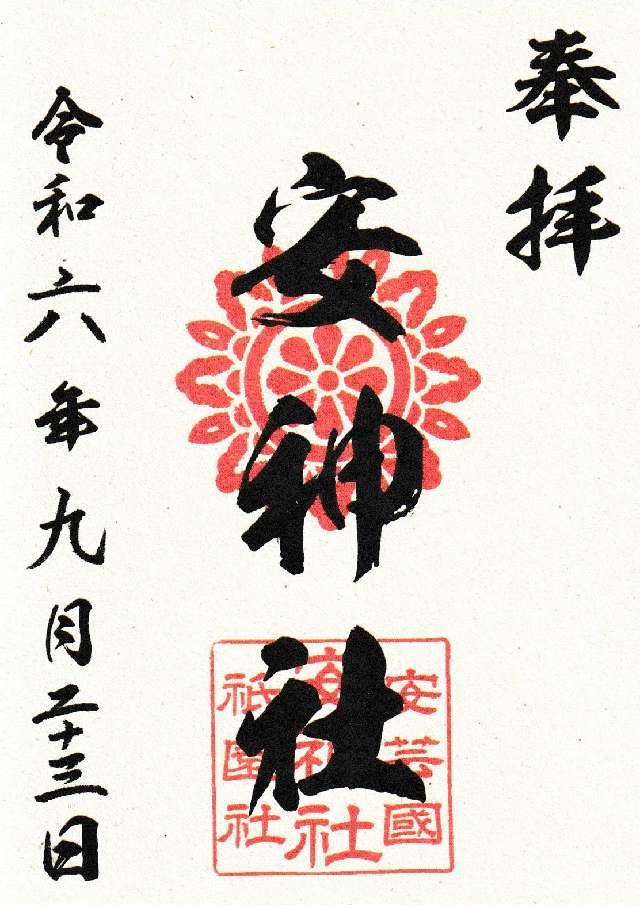 奉拝
安神社
安芸國
安神社
祇園社
令和六年九月二十三日